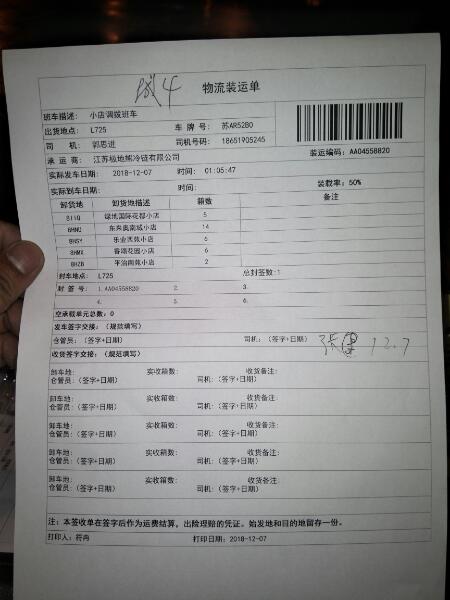 城4
物流装运单
班车描述: 小店调拨班车
出货地点: L725 车 牌 号: 苏AR52B0
司 机: 郭思进 司机号码: 18651905245
承 运 商: 江苏极地熊冷链有限公司 装运编码: AA04558820
实际发车日期: 2018-12-07 时间: 01:05:47
实际到车日期: 时间: 装载率: 50%
卸货地 卸货地描述 箱数 备注
绿地国际花都小店 5
BHMU 东郊奥南城小店 14
BHSY 乐业西苑小店 6
BHMX 香颂花园小店 6
BHZB 平治南苑小店 2
封车地点: L725 总封签数:1
封 签 号: 1.AA04558820 2. 3.
4. 5. 6.
空承载单元总数: 0
发车签字交接: (规范填写)
仓管员: (签字+日期) 司机: (签字+日期) 12.7
收货签字交接: (规范填写)
卸车地: 实收箱数: 收货备注:
仓管员: (签字+日期) 司机: (签字+日期)
卸车地: 实收箱数: 收货备注:
仓管员: (签字+日期) 司机: (签字+日期)
卸车地: 实收箱数: 收货备注:
仓管员: (签字+日期) 司机: (签字+日期)
卸车地: 实收箱数: 收货备注:
仓管员: (签字+日期) 司机: (签字+日期)
卸车地: 实收箱数: 收货备注:
仓管员: (签字+日期) 司机: (签字+日期)
注: 本签收单在签字后作为运费结算, 出险理赔的凭证。始发地和目的地留存一份。
打印人: 符冉 打印日期: 2018-12-07